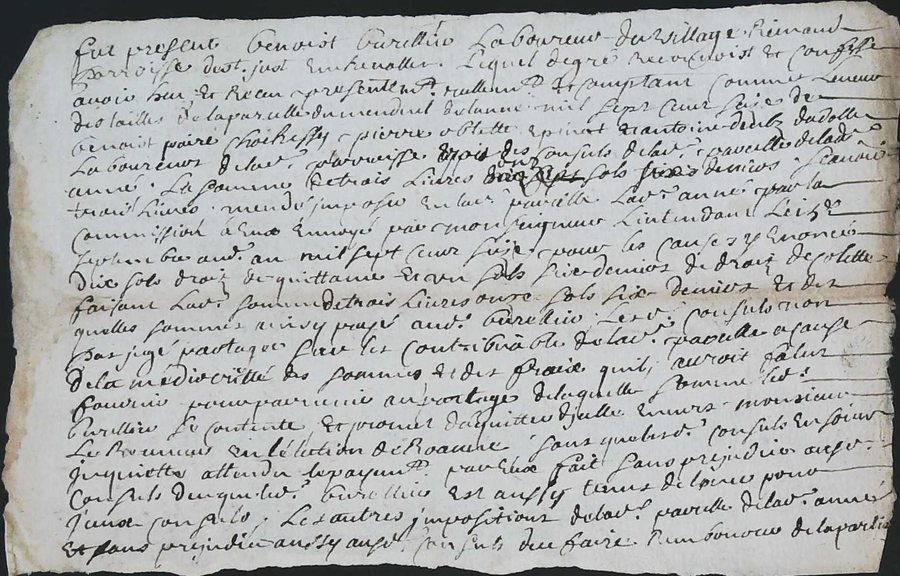 fut present benoist burellier Laboureur du village Rimaud
parroisse de st. just En chevallet Lequel de gré Reconnoist et confesse
avoir heu et Receu presentemt. reellemt. et comptant comme Leveur
des tailles de la parcelle du mandemt de lannee mil sept cent seize de
benoist poire pierre oblette Epinat et antoine
Laboureurs de lad. parroisse consuls de lad. parcelle de lad.
anne. La somme de trois Livres onze sols six deniers. Scavoir
trois Livres imposée En lad. parcelle Lad. anné par la
commission à Eux Envoyé par monseigneur Lintendant Le
septembre aud. an mil sept cent seize pour les causes y Enoncés
dix sols droit de quittance et un sols six deniers de droit de collette
faisant Lad. somme de trois Livres onze sols six deniers et des
quelles sommes ainsy payé aud. burellier Lesd. consuls non
pas jugé partager sur Les contribuable de lad. parcelle a cause
de la médiocritté des sommes et des fraix quil auroit fallut
fournir pour parvenir au partage de laquelle somme led.
burellier se contente et promet daquitter Envers monsieur
Le Receveur En lélection de Roanne sans que lesd. consuls En soient
Inquiettés attendu le payemt. par Eux fait sans prejudice auxd.
consuls de ce que led. burellier Est aussy tenus de lever pour
Les autres impositions de lad. parcelle de lad. anné
Et sans prejudice aussy auxd. consuls de faire Remboursser de la parti